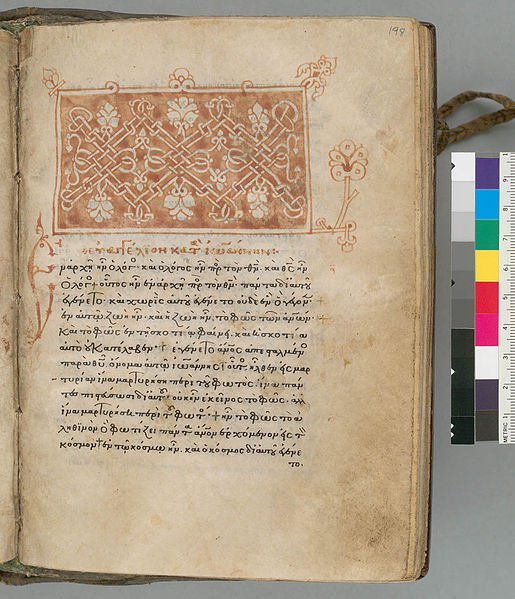 198
+ ΕΥΑΓΓΕΛΙΟΝ ΚΑΤ ΙΩΑΝΝΗΝ
Ἐν ἀρχῇ ἦν ὁ λόγος· καὶ ὁ λόγος ἦν πρ τὸν θν· καὶ θς ἦν
ὁ λόγος + οὗτος ἦν ἐν ἀρχῇ πρ τὸν θν· πάντα δι αυτοῦ
ἐγένετο· καὶ χωρὶς αὐτοῦ ἐγένετο οὐδὲ ἓν ὃ γέγονεν· +
ἐν αὐτῷ ζωὴ ἦν· καὶ ἡ ζωὴ ἦν τὸ φῶς τῶν ἀνων·
καὶ τὸ φῶς ἐν τῇ σκοτία φαίνει· καὶ ἡ σκοτία
αὐτὸ οὐ κατέλαβεν· + ἐγένετο ἀνος ἀπεσταλμένος
παρὰ θυ· ὄνομα αὐτῷ ἰωάννης + οὗτ ἦλθεν εἰς μαρ
τυρίαν ἵνα μαρτυρήσῃ περὶ τοῦ φωτός· ἵνα πάν
τες πιστεύσωσι δι αυτοῦ· οὐκ ἦν ἐκεῖνος τὸ φῶς· ἀλλ
ἵνα μαρτυρήσῃ περὶ τ φωτ· + ἦν τὸ φῶς τὸ ἀ
ληθινὸν ὃ φωτίζει πάντα ἀνον ἐρχόμενον εἰς τ
κόσμον + ἐν τῷ κόσμῳ ἦν· καὶ ὁ κόσμος δι αυτοῦ ἐγένε
το·
METRIC 1